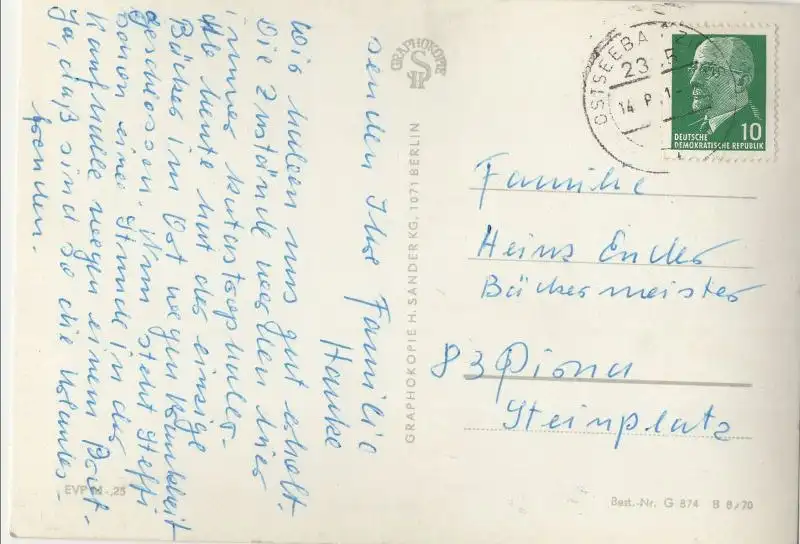 Wir haben uns gut erholt.
Die Zustände werden hier
immer katastrophaler.
Ab heute hat der einzige
Bäcker im Ort wegen Krankheit
geschlossen. Nun steht Steffi
schon eine Stunde in der
Kaufhalle wegen einem Brot.
Ja, daß sind so die Urlaubs-
freuden.
senden Ihre Familie
Hanke
GRAPHOKOPIE
H S
GRAPHOKOPIE H. SANDER KG, 1071 BERLIN
EVP M -,25
OSTSEEBA
23
14
DEUTSCHE
DEMOKRATISCHE REPUBLIK
10
Familie
Heinz Ender
Bäckermeister
83 Pirna
Steinplatz
Best.-Nr. G 874 B 8/70